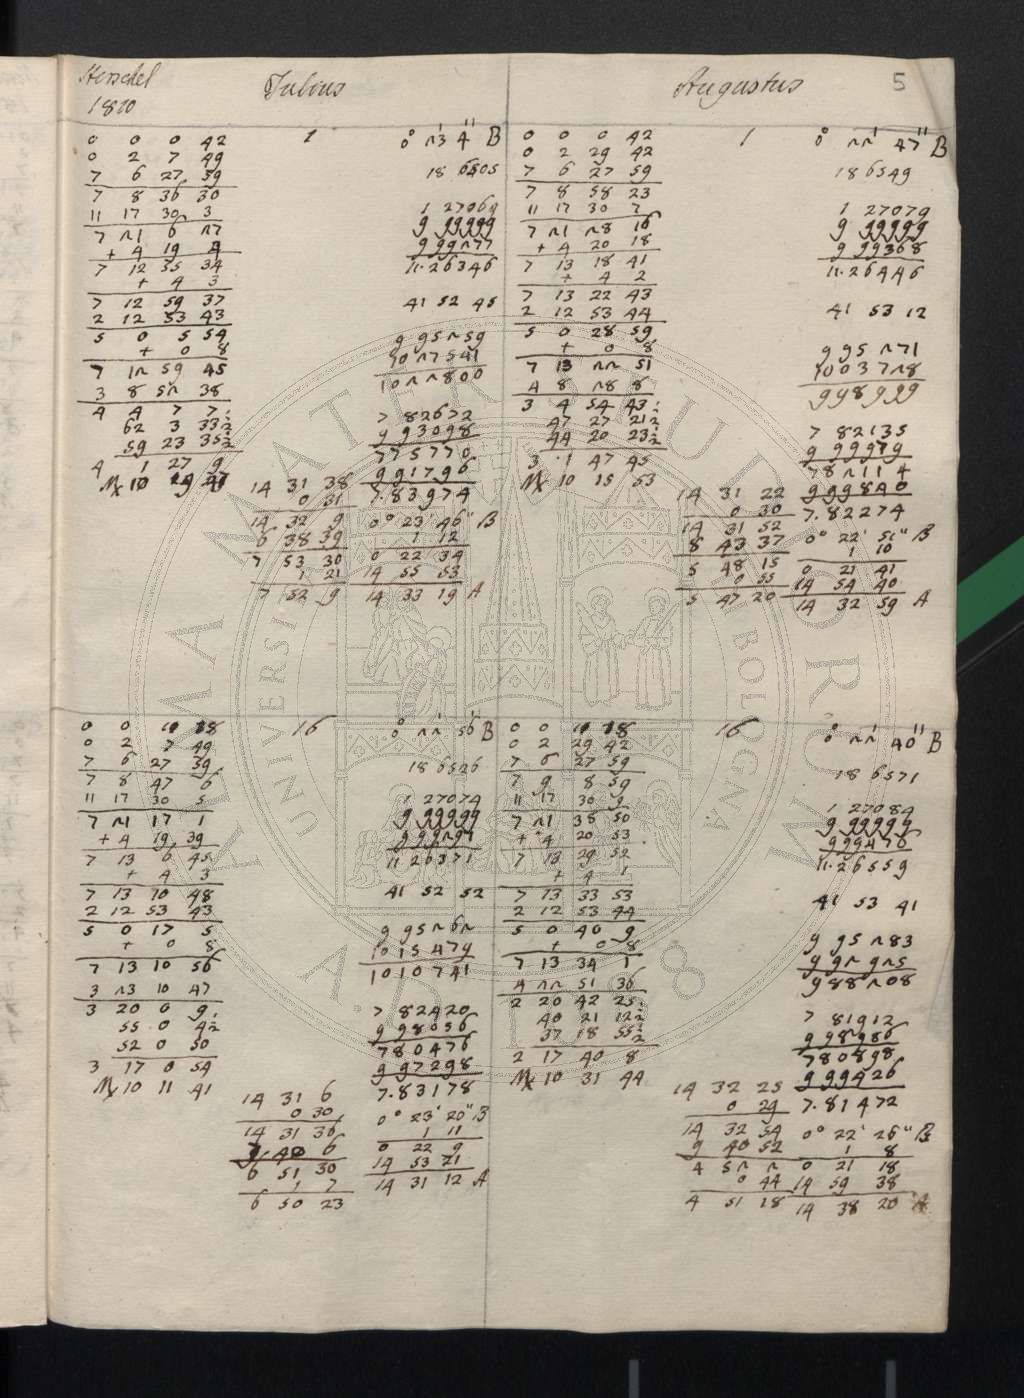 Herschel
1810
Julius
0 0 0 42
0 2 7 49
7 6 27 59
7 8 36 30
11 17 30 3
7 21 6 27
+ 4 19 4
7 12 55 34
+ 4 3
7 12 59 37
2 12 53 43
5 0 5 54
+ 0 8
7 12 59 45
3 8 52 38
4 4 7 7
62 3 33½
59 23 35½
4 1 27 9
10
1
0° 23' 4" B
18 6505
1 27069
9 99999
9 99277
11.26346
41 52 45
9 95259
10 27541
1022800
7 82672
9 93098
775770
991796
7.83974
14 31 38
0 31
14 32 9
6 38 39
7 53 30
1 21
7 52 9
0° 23' 46" B
1 12
0 22 34
14 55 53
14 33 19 A
Augustus
5
0 0 0 42
0 2 29 42
7 6 27 59
7 8 58 23
11 17 30 7
7 21 28 16
+ 4 20 18
7 13 18 41
+ 4 2
7 13 22 43
2 12 53 44
5 0 28 59
+ 0 8
7 13 22 51
4 8 28 8
3 4 54 43
47 27 21½
44 20 23½
3 1 47 45
10 15 53
1
0° 22' 47" B
18 6549
1 27079
9 99999
9 99368
11.26446
41 53 12
9 95271
10 03728
998999
7 82135
9 99979
782114
999840
7.82274
14 31 22
0 30
14 31 52
8 43 37
5 48 15
0 55
5 47 20
0° 22' 51" B
1 10
0 21 41
14 54 40
14 32 59 A
0 0 11 18
0 2 7 49
7 6 27 59
7 8 47 6
11 17 30 5
7 21 17 1
+ 4 19 39
7 13 6 45
+ 4 3
7 13 10 48
2 12 53 43
5 0 17 5
+ 0 8
7 13 10 56
3 23 10 47
3 20 0 9
55 0 4½
52 0 50
3 17 0 54
10 11 41
16
0° 22' 56" B
18 6526
1 27074
9 99999
9 99297
11 26371
41 52 52
9 95262
10 15479
1010741
7 82420
9 98056
780476
997298
7.83178
14 31 6
0 30
14 31 36
7 40 6
6 51 30
1 7
6 50 23
0° 23' 20" B
1 11
0 22 9
14 53 21
14 31 12 A
0 0 11 18
0 2 29 42
7 6 27 59
7 9 8 59
11 17 30 9
7 21 38 50
+ 4 20 53
7 13 29 52
+ 4 1
7 13 33 53
2 12 53 44
5 0 40 9
+ 0 8
7 13 34 1
4 22 51 36
2 20 42 25
40 21 12½
37 18 55½
2 17 40 8
10 31 44
16
0° 22' 40" B
18 6571
1 27084
9 99999
999476
11.26559
41 53 41
9 95283
9 92925
988208
7 81912
9 98986
780898
999426
7.81472
14 32 25
0 29
14 32 54
9 40 52
4 52 2
0 44
4 51 18
0° 22' 26" B
1 8
0 21 18
14 59 38
14 38 20 A
ALMA MATER STUDIORUM
UNIVERSITÀ DI BOLOGNA
A.D. 1088